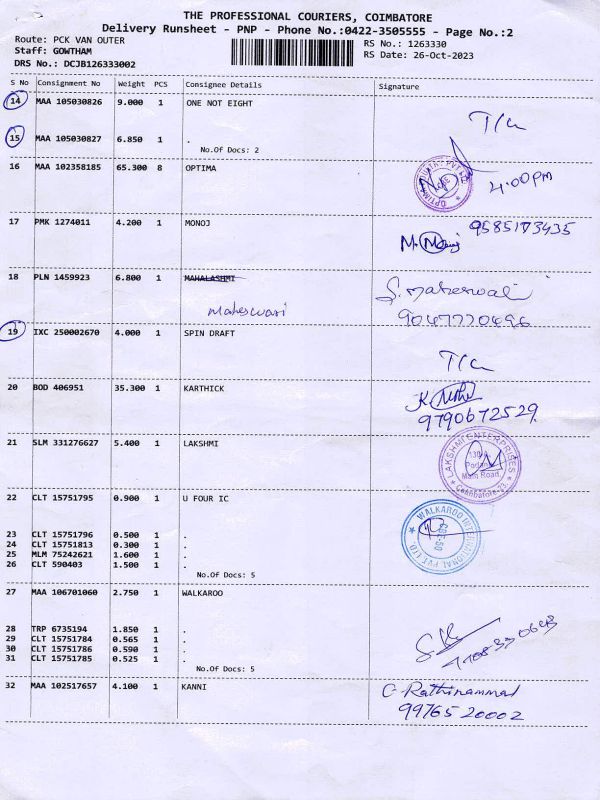 THE PROFESSIONAL COURIERS, COIMBATORE
Delivery Runsheet - PNP - Phone No.:0422-3505555 - Page No.:2
Route: PCK VAN OUTER
Staff: GOWTHAM
DRS No.: DCJB126333002
RS No.: 1263330
RS Date: 26-Oct-2023
S No Consignment No Weight PCS Consignee Details Signature
14 MAA 105030826 9.000 1 ONE NOT EIGHT
15 MAA 105030827 6.850 1 .
No.Of Docs: 2
16 MAA 102358185 65.300 8 OPTIMA
4:00PM
17 PMK 1274011 4.200 1 MONOJ
9585173435
18 PLN 1459923 6.800 1 MAHALASHMI
Maheswari
S. Maheswari
9047770496
19 IXC 250002670 4.000 1 SPIN DRAFT
20 BOD 406951 35.300 1 KARTHICK
9790672529
21 SLM 331276627 5.400 1 LAKSHMI
LAKSHMI ENTERPRISES
Podanur
Main Road,
Coimbatore-23.
22 CLT 15751795 0.900 1 U FOUR IC
WALKAROO INTERNATIONAL PVT LTD.
23 CLT 15751796 0.500 1 .
24 CLT 15751813 0.300 1 .
25 MLM 75242621 1.600 1 .
26 CLT 590403 1.500 1 .
No.Of Docs: 5
27 MAA 106701060 2.750 1 WALKAROO
28 TRP 6735194 1.850 1 .
29 CLT 15751784 0.565 1 .
30 CLT 15751786 0.590 1 .
31 CLT 15751785 0.525 1 .
No.Of Docs: 5
32 MAA 102517657 4.100 1 KANNI
C. Rathinammal
99765 20002